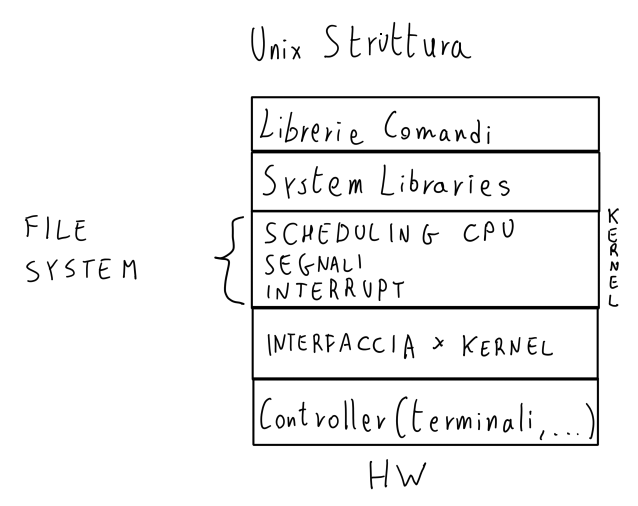 Unix Struttura
Librerie Comandi
System Libraries
FILE
SYSTEM
SCHEDULING CPU
SEGNALI
INTERRUPT
KERNEL
INTERFACCIA x KERNEL
Controller (terminali, ...)
HW